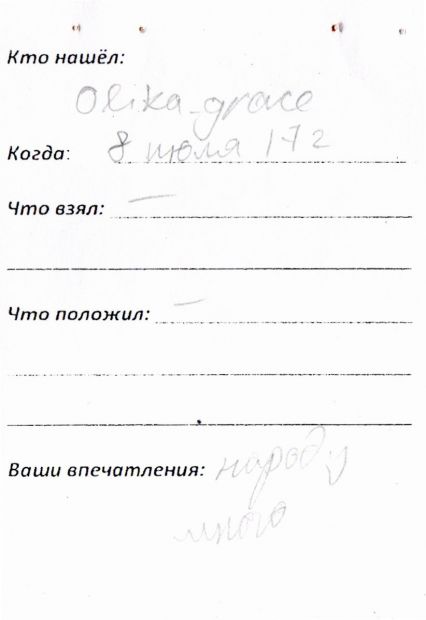 Кто нашёл:
Olika_grace
Когда: 8 июля 17г
Что взял: —
Что положил: —
Ваши впечатления: народу
много